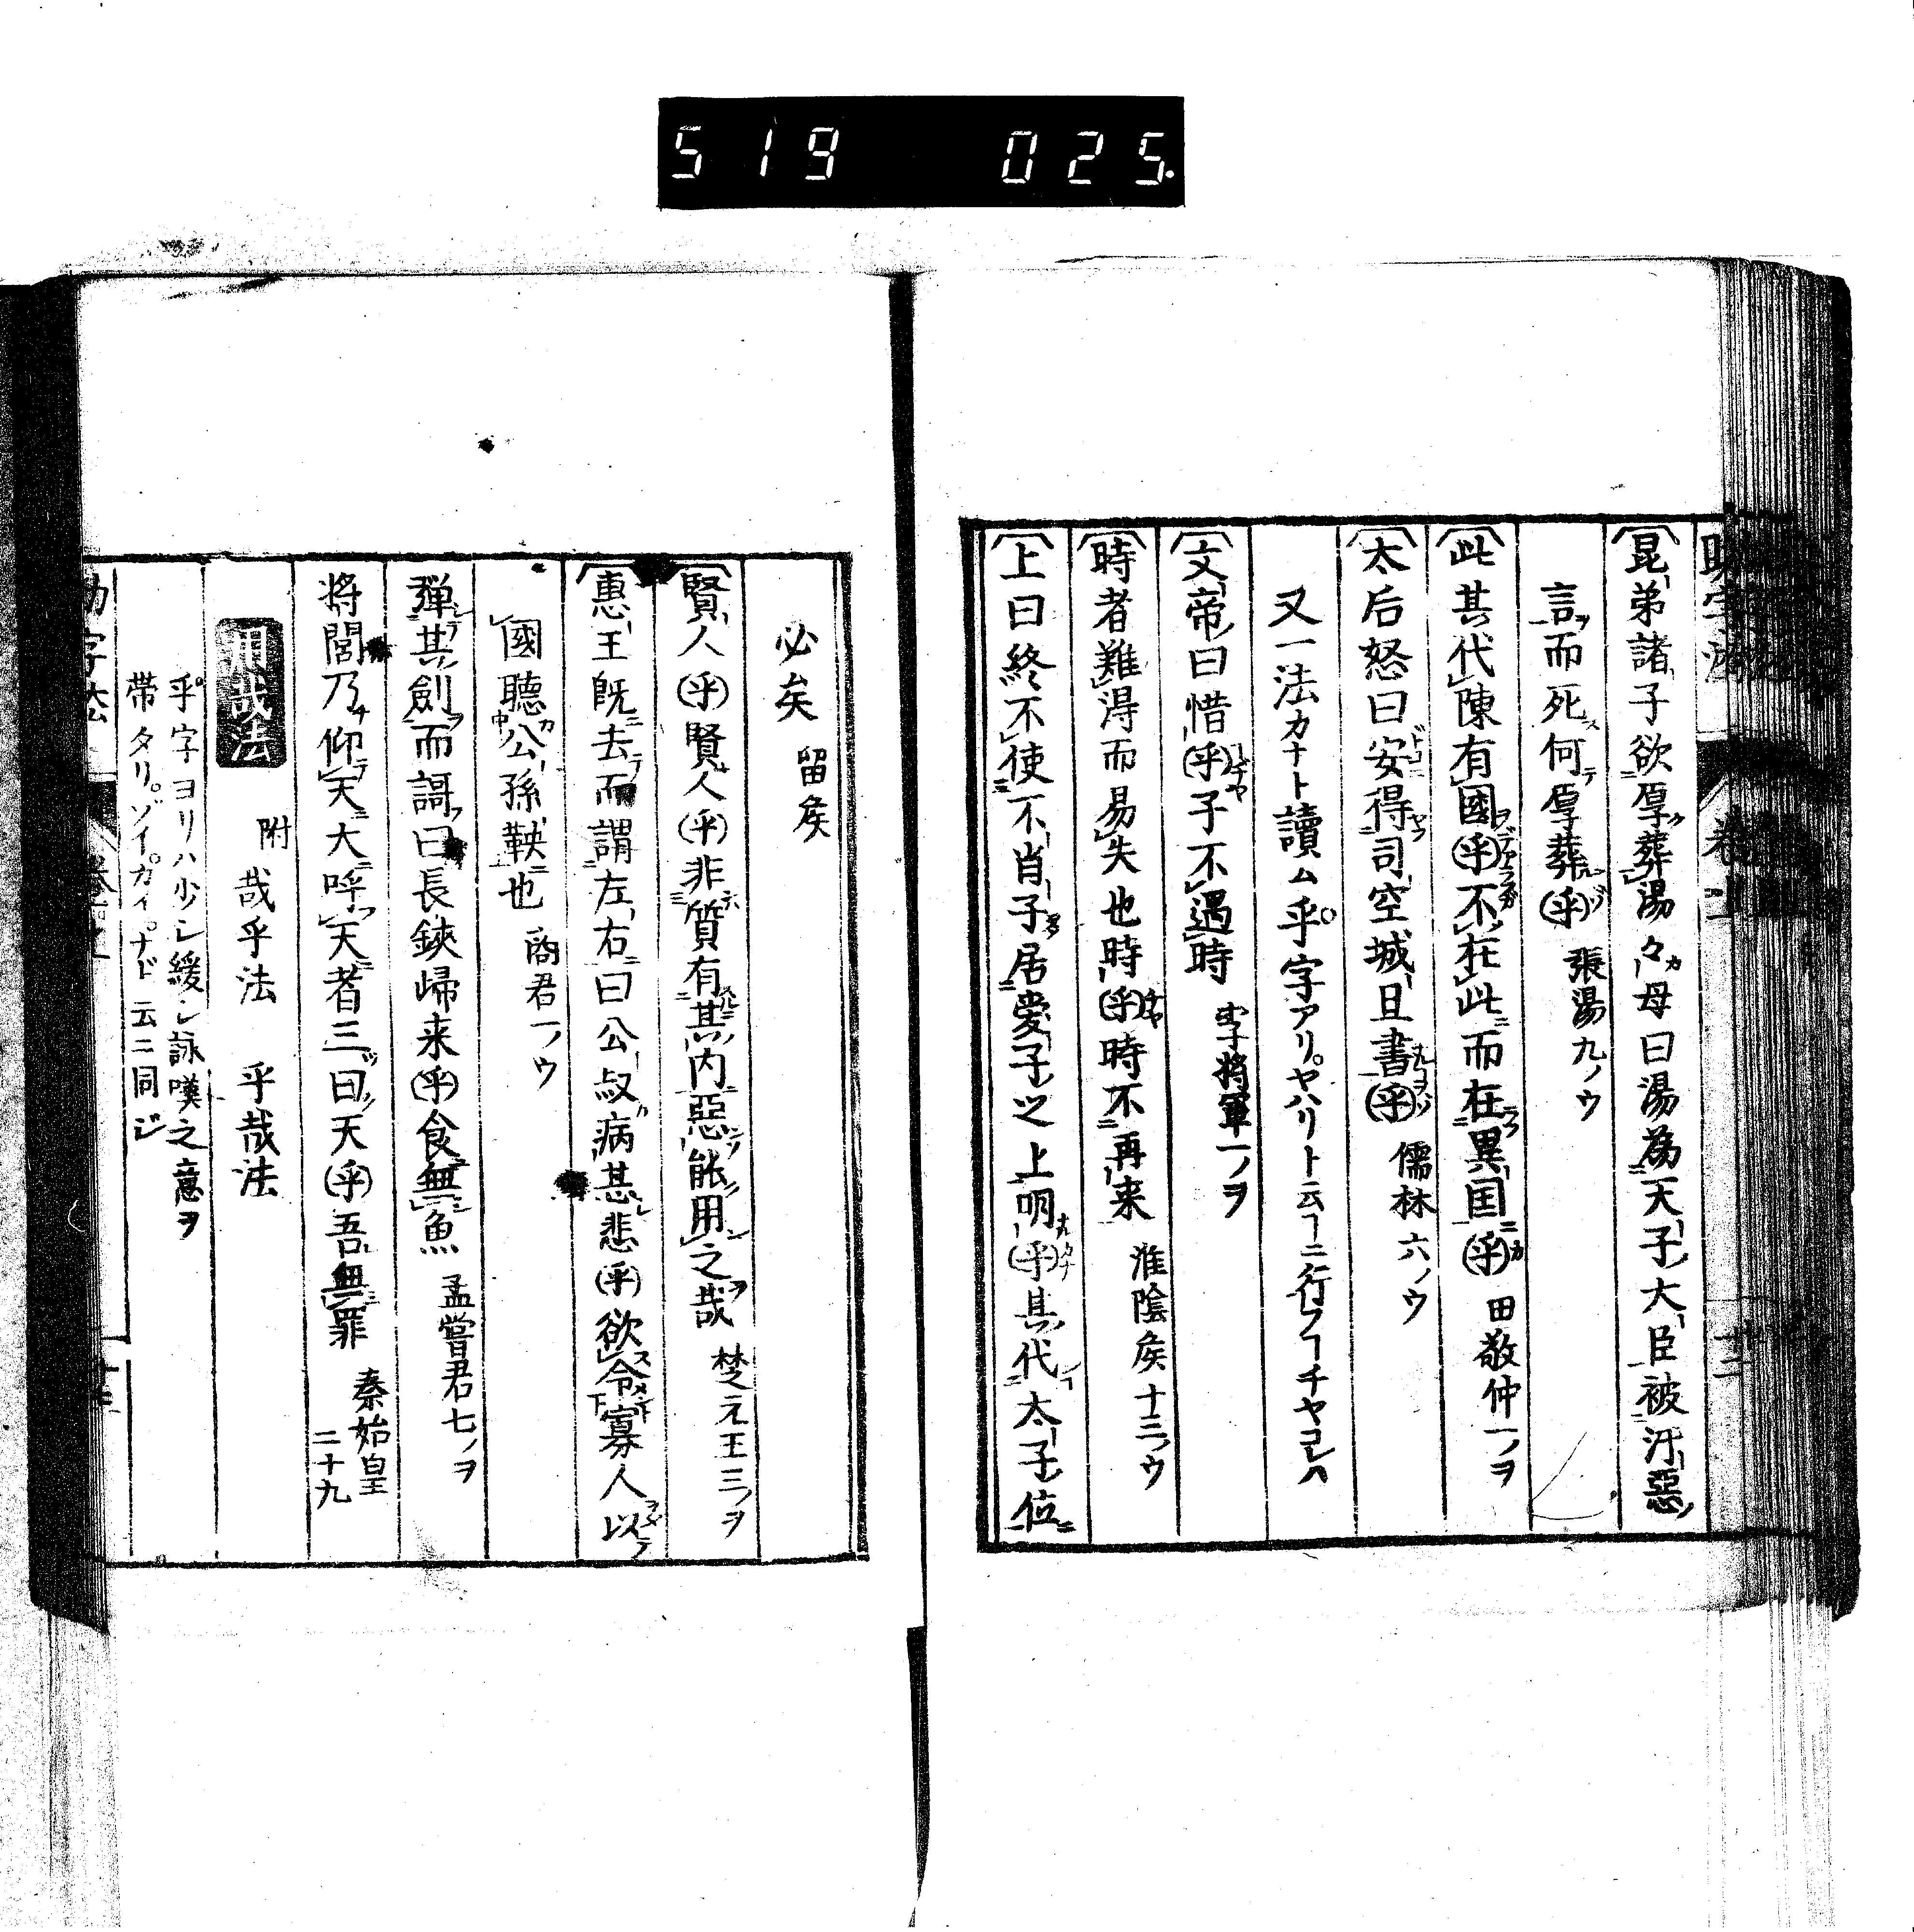 519 025
昆弟諸子欲厚葬湯々母曰湯為天子大臣被汙惡
言而死何厚葬乎 張湯九ノウ
此其代陳有國乎不在此而在異国乎 田敬仲一ノヲ
太后怒曰安得司空城旦書乎 儒林六ノウ
又一法カナト讀ム乎字アリヤハリト云ヿニ行フヿチヤコレハ
文帝曰惜乎子不遇時 李将軍一ノヲ
時者難淂而易失也時乎時不再来 淮陰矦十三ノウ
上曰終不使不肖子居愛子之上明乎其代太子位
必矣 留矦
賢人乎賢人乎非質有其内惡能用之哉 楚元王三ノヲ
惠王既去而謂左右曰公叔病甚悲乎欲令寡人以
國聽公孫鞅也 商君一ノウ
彈其劍而謌曰長鋏歸来乎食無魚 孟嘗君七ノヲ
將閭乃仰天大呼天者三曰天乎吾無罪 秦始皇二十九
用哉法 附 哉乎法 乎哉法
乎字ヨリハ少シ緩シ詠嘆之意ヲ
帯タリゾイカイナド云ニ同ジ